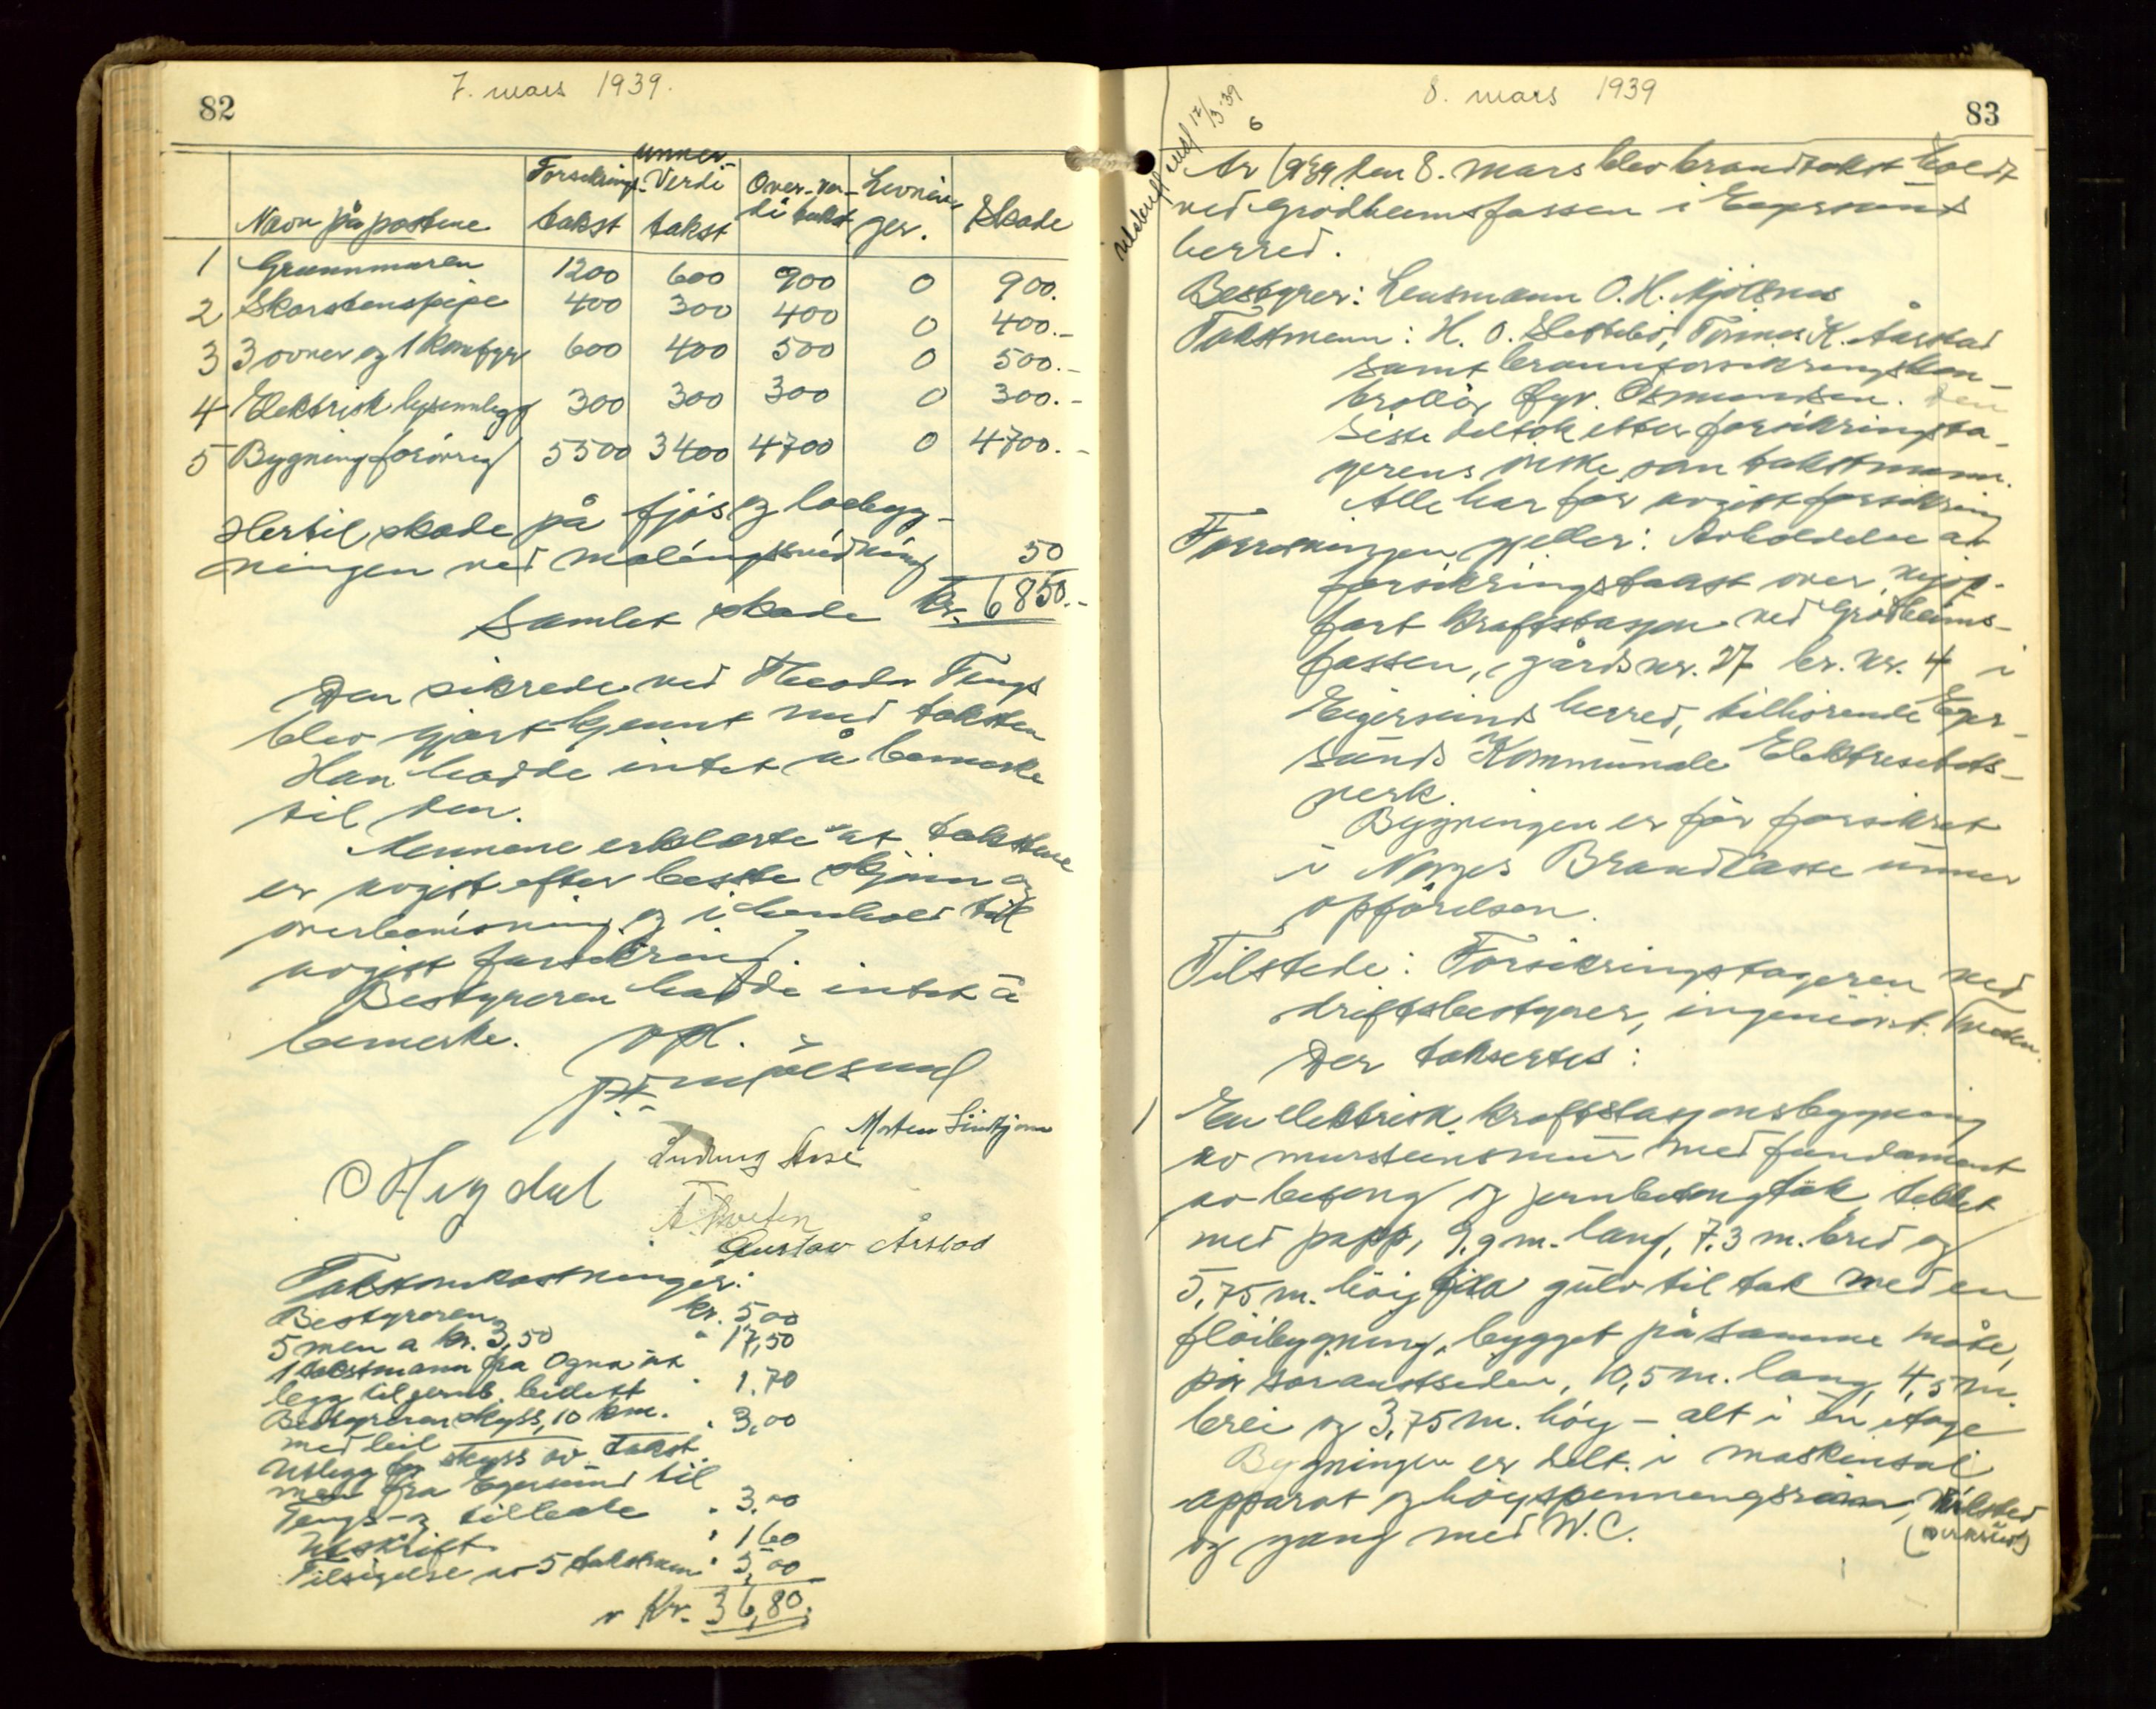 82
7. mars 1939.
Navn på postene | Forsikrings-takst | unner-Verdi takst | Over-ver-di takst | Levnin-ger. | Skade
1 Grunnmuren 1200 600 900 0 900.
2 Skorstenspipe 400 300 400 0 400.-
3 3 ovner og 1 komfyr 600 400 500 0 500.-
4 Elektrisk lysannlegg 300 300 300 0 300.-
5 Bygning forövrig 5500 3400 4700 0 4700.-
Hertil skade på fjös og loebygg-
ningen ved malings 50
Samlet skade Kr. 6850.-
Den sikrede ved Theodor Tengs
blev gjort kjennt med taksten
Han hadde intet å bemerke
til den.
Mennene erklærte at takstene
er avgitt efter beste skjönn og
overbevisning og i henhold til
avgitt forsikring.
Bestyreren hadde intet å
bemerke. opl.
Morten
Ludvig
Gustav Årstad
Takstomkostninger:
Bestyreren kr. 5,00
5 men a kr. 3,50 " 17,50
1 takstmann fra Ogna ut
legg til jernb. billett " 1.70
Bestyreren skyss, 10 km.
med bil " 3,00
Utlegg for skyss av takst
men fra Egersund til
Tengs og tilbake " 3.00
Utskrift " 1 60
Tilsigelse av 5 takstmenn " 5,00
Kr. 36,80.
83
8. mars 1939
17/3 39
6
År 1939 den 8. mars blev brandtakst holdt
ved Grödheimsfossen i Eigersunds
herred.
Bestyrer: Lensmann O. H. Mjölsnes
Takstmenn: H. O. Slettebö, Tönnes K. Aarstad
samt brannforsikringskon-
trollör Osmundsen. Den
siste deltok etter forsikringsta-
gerens önske som takstmann.
Alle har för avgitt forsikring
Forretningen gjeller: Avholdelse av
forsikringstakst over nyop-
fört kraftstasjon ved Grödheims-
fossen, gårds nr. 27 br. nr. 4 i
Eigersunds herred, tilhörende Eger-
sunds Kommunale Elektrisitets-
verk.
Bygningen er för forsikret
i Norges Brandkasse unner
opförelsen.
Tilstede: Forsikringstageren ved
driftsbestyrer, ingeniör
Der taksertes:
1 En elektrisk kraftstasjonsbygning
av mursteinsmur med fundament
av betong og jernbetongtak, tekket
med papp, 9,9 m. lang, 7,3 m. bred og
5,75 m. höig fra gulv til tak med en
flöibygning, bygget på samme måte,
på söraustsiden, 10,5 m. lang, 4,5 m.
brei og 3,75 m. höy - alt i en etage
Bygningen er delt i maskinsal
apparat og höyspenningsrum,
og gang med W.C.